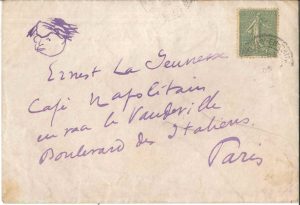 Ernest La Jeunesse
Café Napolitain
le Vaudeville
Boulevard des Italiens
Paris